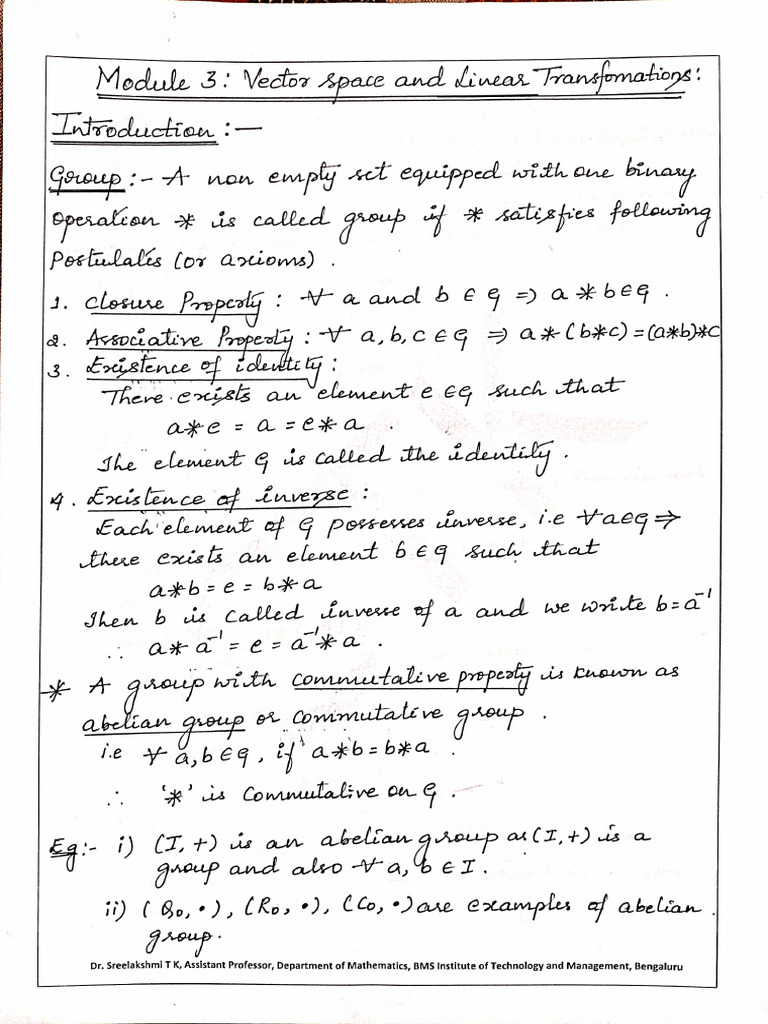 Module 3: Vector space and Linear Transfomations:
Introduction :—
Group :- A non empty set equipped with one binary
operation * is called group if * satisfies following
Postulates (or axioms) .
1. Closure Property : ∀ a and b ∈ G ⇒ a * b ∈ G .
2. Associative Property : ∀ a, b, c ∈ G ⇒ a * (b * c) = (a * b) * c
3. Existence of identity :
There exists an element e ∈ G such that
a * e = a = e * a .
The element G is called the identity .
4. Existence of inverse :
Each element of G possesses inverse, i.e ∀ a ∈ G ⇒
there exists an element b ∈ G such that
a * b = e = b * a
Then b is called inverse of a and we write b = a⁻¹
∴ a * a⁻¹ = e = a⁻¹ * a .
* A group with commutative property is known as
abelian group or commutative group .
i.e ∀ a, b ∈ G , if a * b = b * a .
∴ '*' is commutative on G .
Eg :- i) (I, +) is an abelian group as (I, +) is a
group and also ∀ a, b ∈ I .
ii) (Q₀, •) , (R₀, •) , (C₀, •) are examples of abelian
group .
Dr. Sreelakshmi T K, Assistant Professor, Department of Mathematics, BMS Institute of Technology and Management, Bengaluru